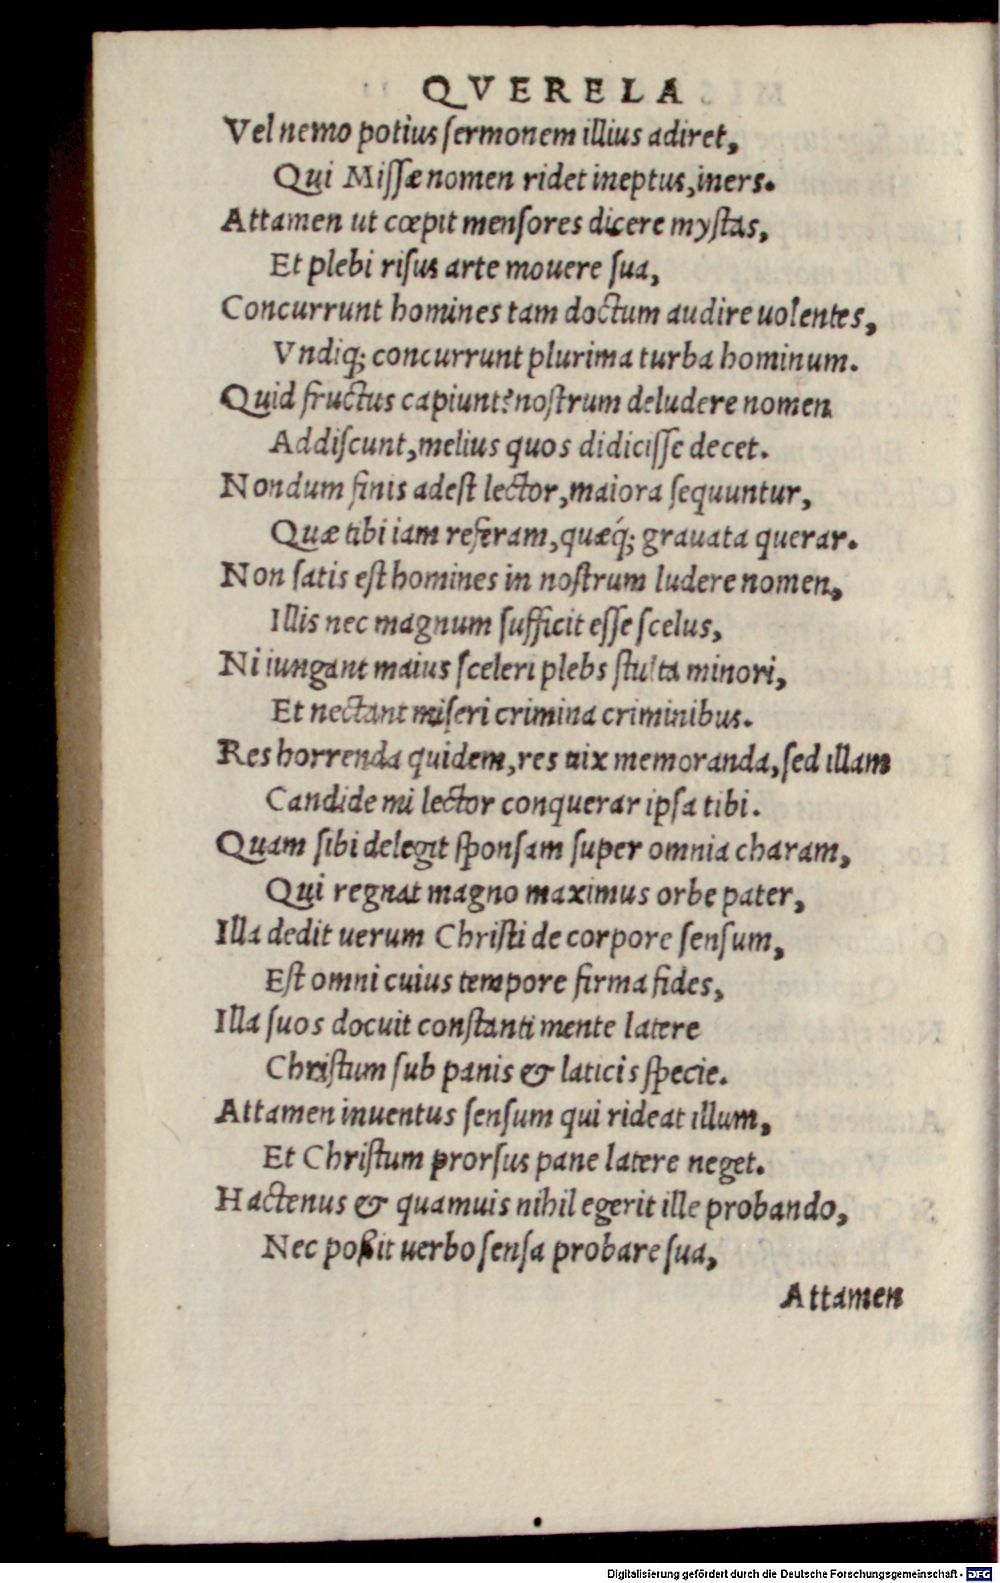 QVERELA
Vel nemo potius ſermonem illius adiret,
Qui Miſſæ nomen ridet ineptus, iners.
Attamen ut cœpit menſores dicere myſtas,
Et plebi riſus arte mouere ſua,
Concurrunt homines tam doctum audire uolentes,
Vndiq; concurrunt plurima turba hominum.
Quid fructus capiunt? noſtrum deludere nomen
Addiſcunt, melius quos didiciſſe decet.
Nondum finis adeſt lector, maiora ſequuntur,
Quæ tibi iam referam, quæq́; grauata querar.
Non ſatis eſt homines in noſtrum ludere nomen,
Illis nec magnum ſufficit eſſe ſcelus,
Ni iungant maius ſceleri plebs ſtulta minori,
Et nectant miſeri crimina criminibus.
Res horrenda quidem, res uix memoranda, ſed illam
Candide mi lector conquerar ipſa tibi.
Quam ſibi delegit ſponſam ſuper omnia charam,
Qui regnat magno maximus orbe pater,
Illa dedit uerum Chriſti de corpore ſenſum,
Eſt omni cuius tempore firma fides,
Illa ſuos docuit conſtanti mente latere
Chriſtum ſub panis & laticis ſpecie.
Attamen inuentus ſenſum qui rideat illum,
Et Chriſtum prorſus pane latere neget.
Hactenus & quamuis nihil egerit ille probando,
Nec poßit uerbo ſenſa probare ſua,
Attamen
Digitalisierung gefördert durch die Deutsche Forschungsgemeinschaft - DFG